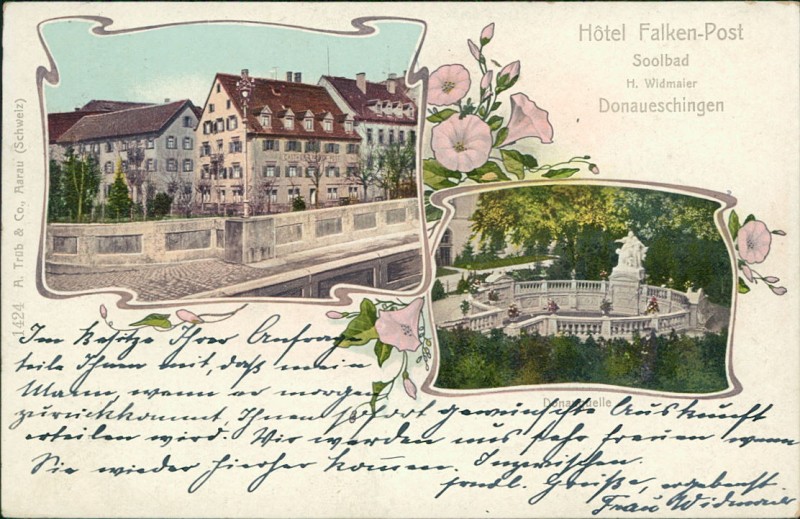 Hôtel Falken-Post
Soolbad
H. Widmaier
Donaueschingen
1424 A. Trüb & Co., Aarau (Schweiz)
Donauquelle
Im Besitze Ihrer Anfrage
teile Ihnen mit, daß mein
Mann, wenn er morgen
zurückkommt, Ihnen sofort gewünschte Auskunft
erteilen wird. Wir werden uns sehr freuen wenn
Sie wieder hierher kommen. Inzwischen
frndl. Grüße, ergebenst
Frau Widmaier